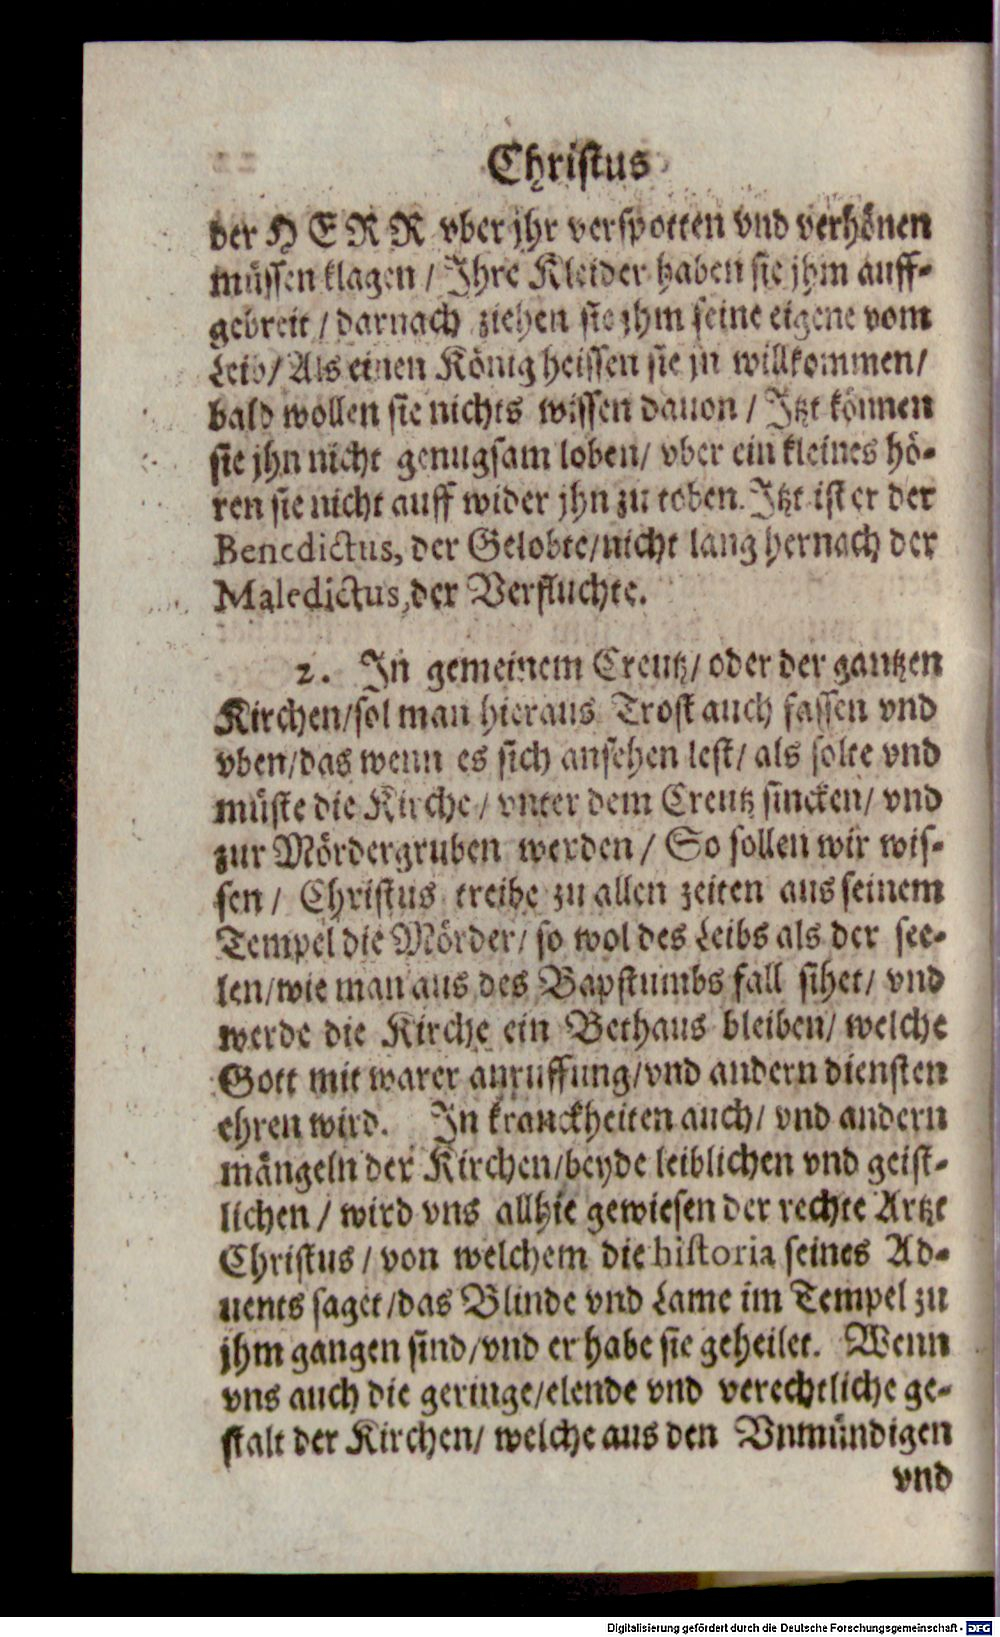 Christus
der HERR vber jhr verspotten vnd verhönen
müssen klagen / Ihre Kleider haben sie jhm auff-
gebreit / darnach ziehen sie jhm seine eigene vom
Leib / Als einen König heissen sie jn willkommen /
bald wollen sie nichts wissen dauon / Itzt können
sie jhn nicht genugsam loben / vber ein kleines hö-
ren sie nicht auff wider jhn zu toben. Itzt ist er der
Benedictus, der Gelobte / nicht lang hernach der
Maledictus, der Verfluchte.
2. In gemeinem Creutz / oder der gantzen
Kirchen / sol man hieraus Trost auch fassen vnd
vben / das wenn es sich ansehen lest / als solte vnd
müste die Kirche / vnter dem Creutz sincken / vnd
zur Mördergruben werden / So sollen wir wis-
sen / Christus treibe zu allen zeiten aus seinem
Tempel die Mörder / so wol des Leibs als der see-
len / wie man aus des Bapstumbs fall sihet / vnd
werde die Kirche ein Bethaus bleiben / welche
Gott mit warer anruffung / vnd andern diensten
ehren wird. In kranckheiten auch / vnd andern
mängeln der Kirchen / beyde leiblichen vnd geist-
lichen / wird vns allhie gewiesen der rechte Artzt
Christus / von welchem die historia seines Ad-
uents saget / das Blinde vnd Lame im Tempel zu
jhm gangen sind / vnd er habe sie geheilet. Wenn
vns auch die geringe / elende vnd verechtliche ge-
stalt der Kirchen / welche aus den Vnmündigen
vnd
Digitalisierung gefördert durch die Deutsche Forschungsgemeinschaft - DFG